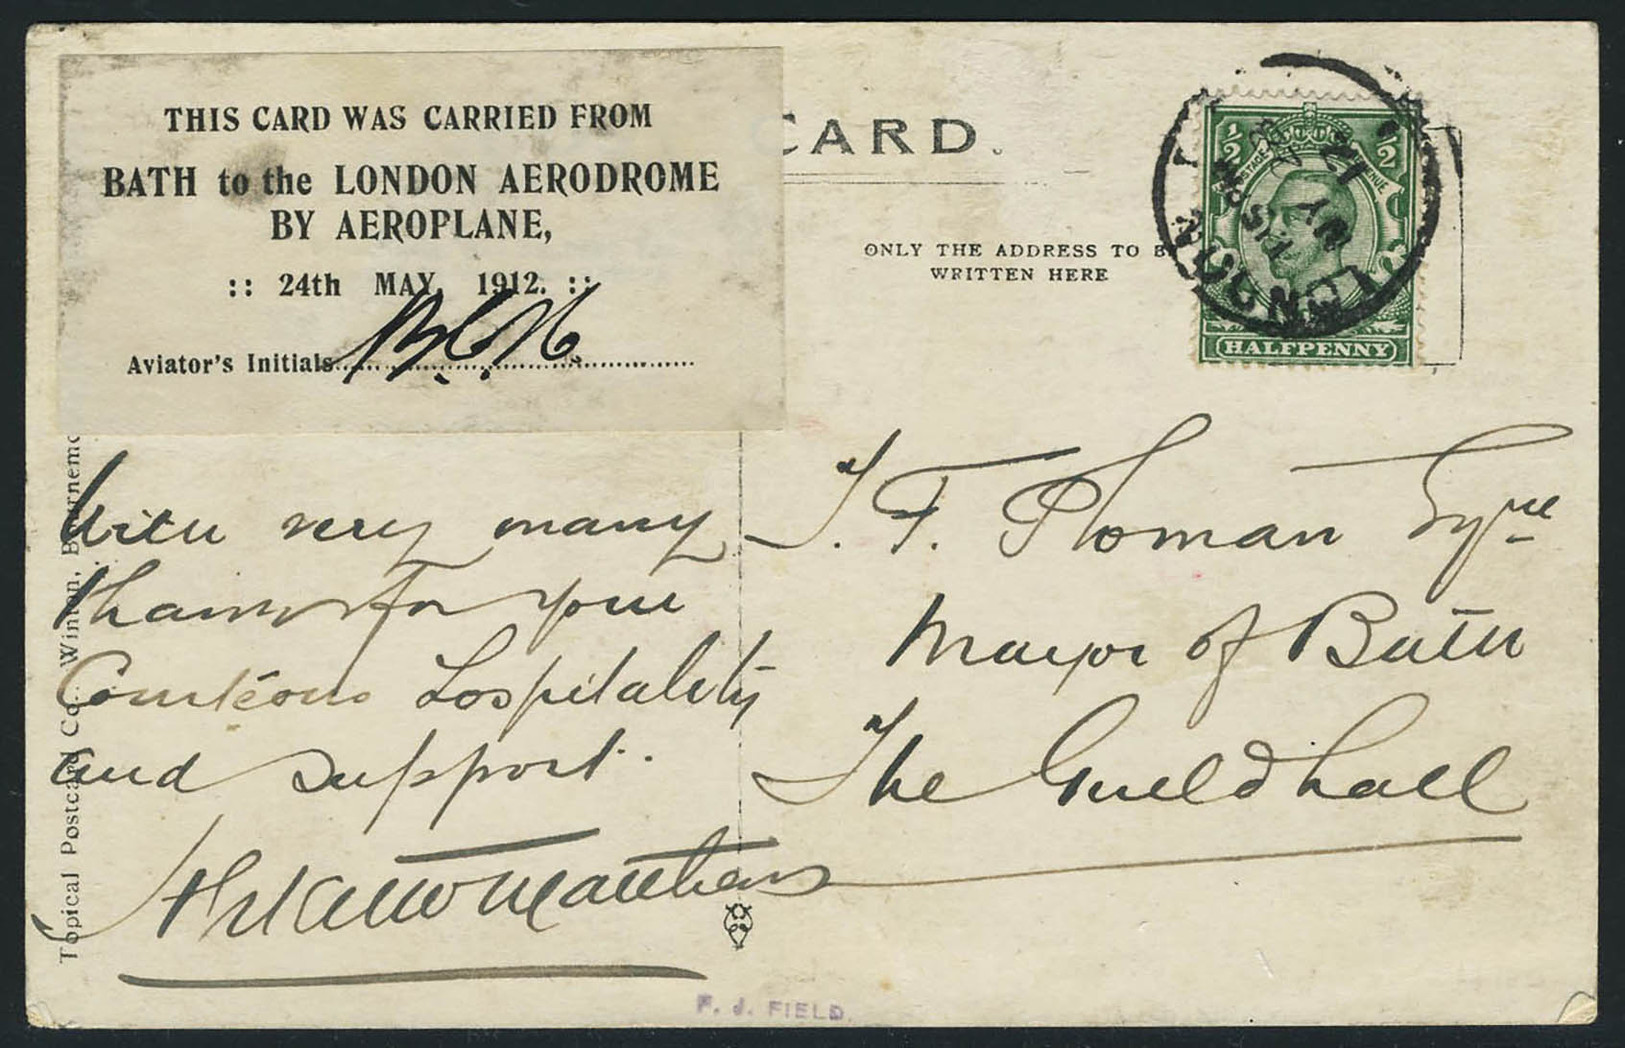 THIS CARD WAS CARRIED FROM
BATH to the LONDON AERODROME
BY AEROPLANE,
:: 24th MAY, 1912. ::
Aviator's Initials
CARD.
ONLY THE ADDRESS TO B
WRITTEN HERE
½ ½
POSTAGE REVENUE
HALFPENNY
LONDON
MY
12
With very many
thanks for your
Courteous hospitality
and support.
J. F. Plowman Esqre
Mayor of Bath
The Guildhall
Topical Postcard Co., Winton, Bournemo
F. J. FIELD.